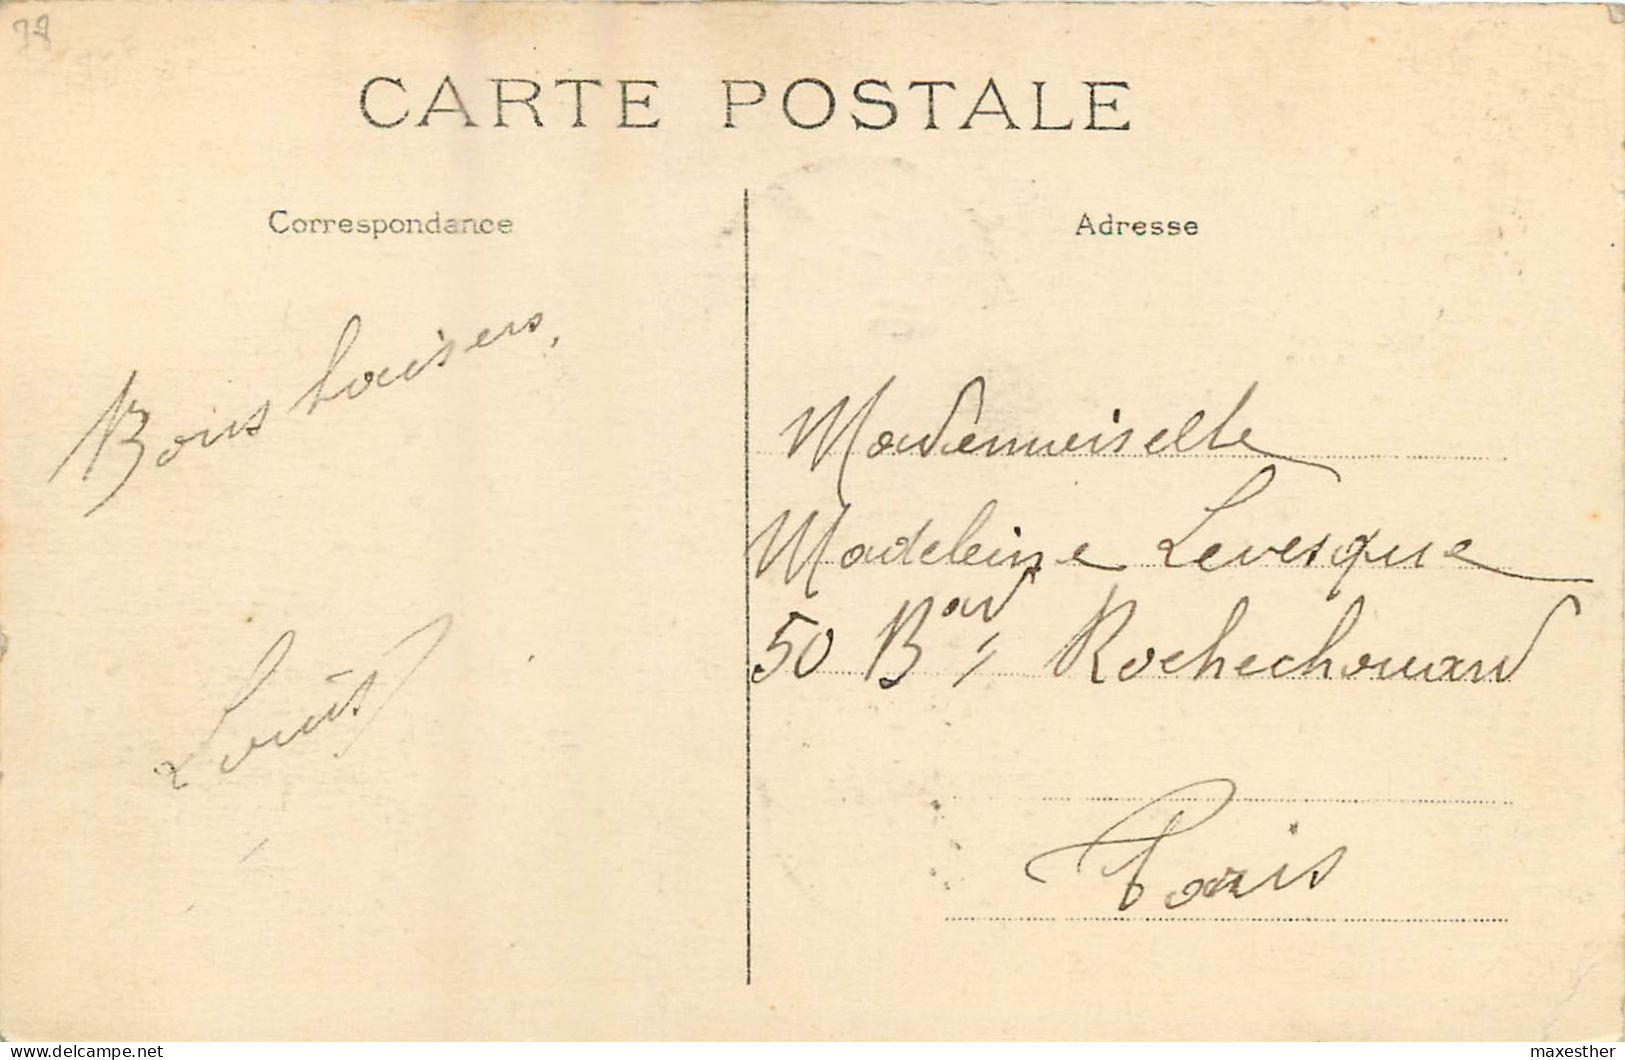 78
CARTE POSTALE
Correspondance
Bons baisers,
Louis
Adresse
Mademoiselle
Madeleine Levesque
50 Bard, Rochechouard
Paris
www.delcampe.net
maxesther